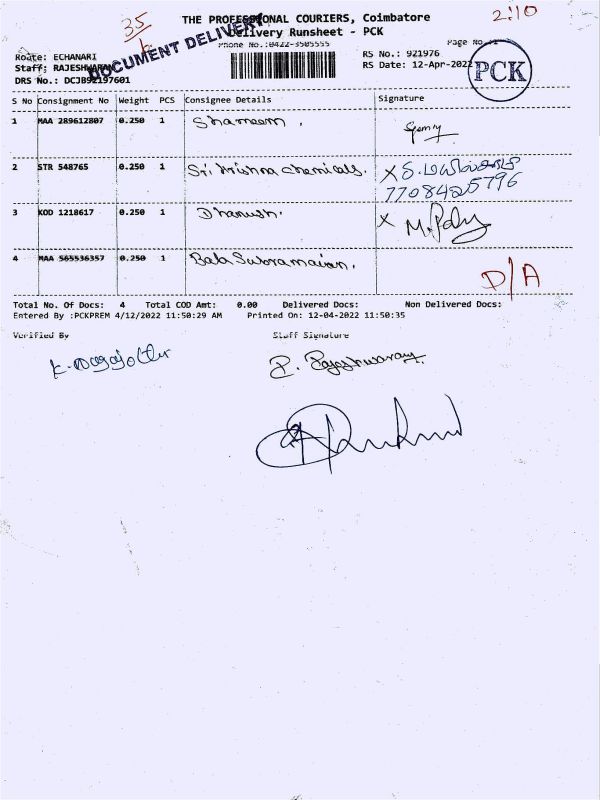 2:10
35
THE PROFESSIONAL COURIERS, Coimbatore
DOCUMENT DELIVERY
Delivery Runsheet - PCK
Phone No.:0422-3505555
Page No.:
Route: ECHANARI
RS No.: 921976
Staff: RAJESHWARAN
RS Date: 12-Apr-2022
PCK
DRS No.: DCJB92197601
S No Consignment No Weight PCS Consignee Details Signature
1 MAA 289612807 0.250 1 Shameem.
2 STR 548765 0.250 1 Sri. Krishna chemicals. X
7708425796
3 KOD 1218617 0.250 1 Dhanush. X M.
4 MAA 565536357 0.250 1 Bala Subramaian.
D/A
Total No. Of Docs: 4 Total COD Amt: 0.00 Delivered Docs: Non Delivered Docs:
Entered By :PCKPREM 4/12/2022 11:50:29 AM Printed On: 12-04-2022 11:50:35
Verified By Staff Signature